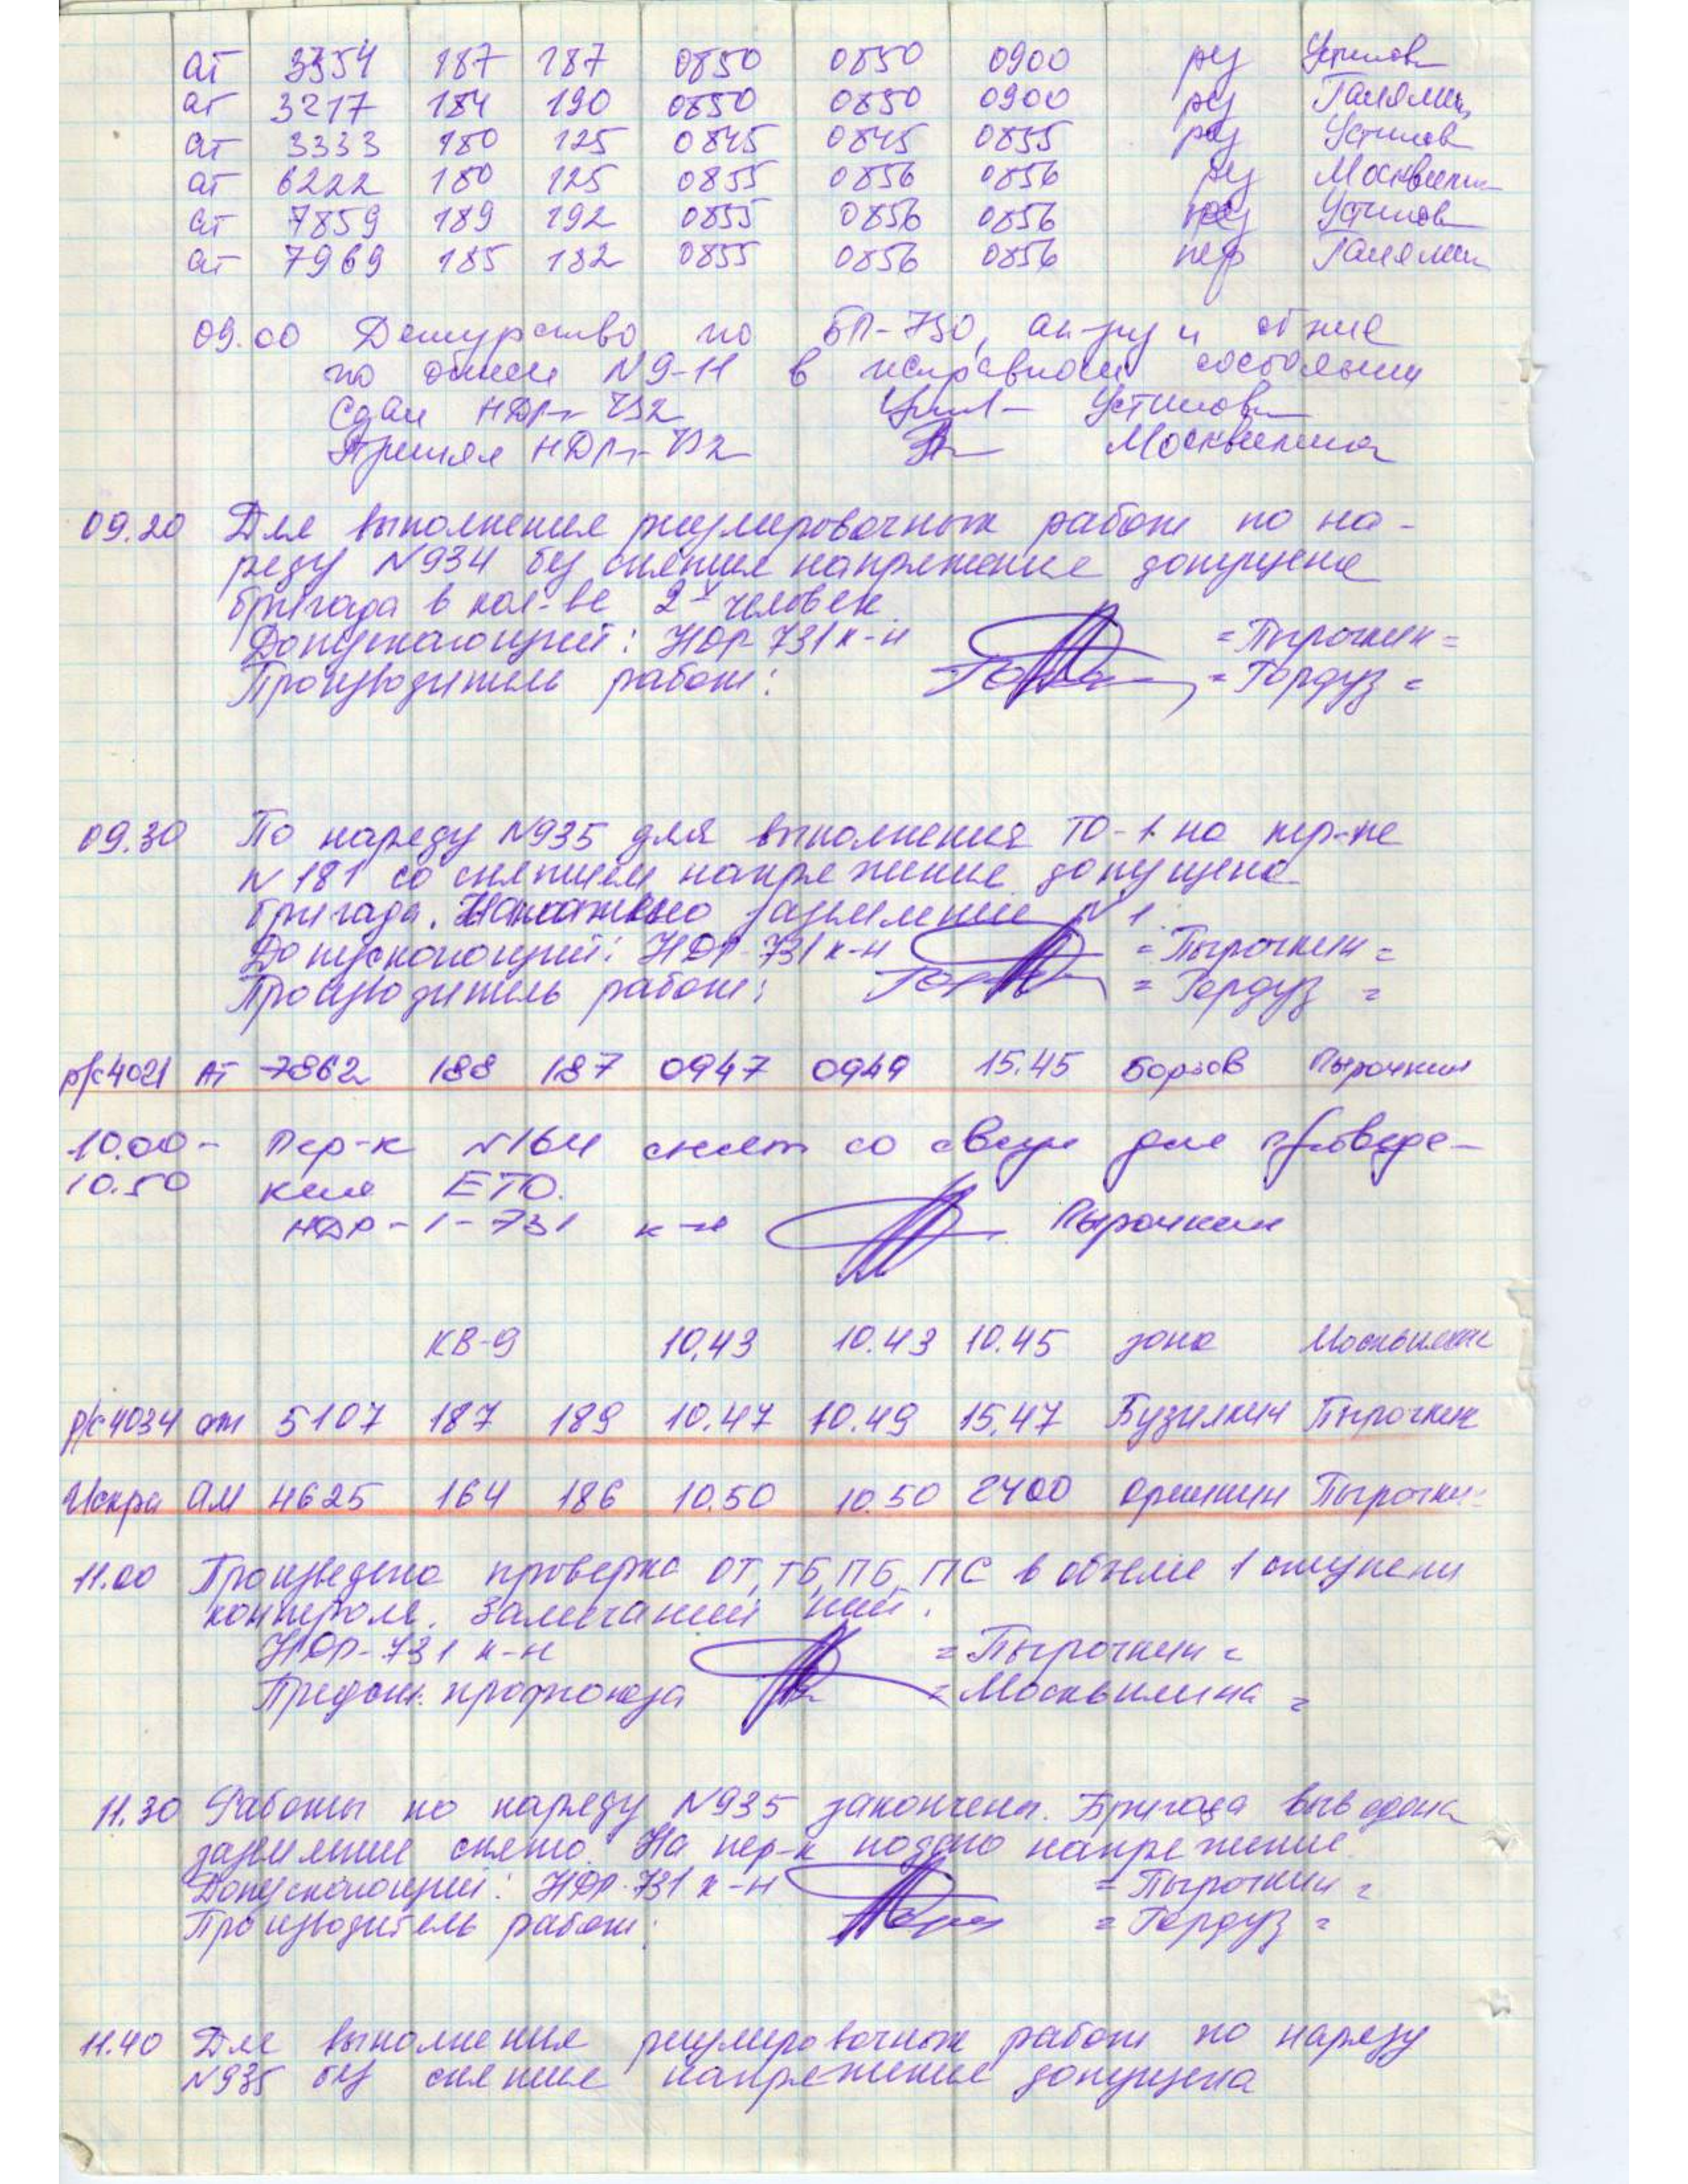 ат 3354 187 187 0850 0850 0900 рез Устинов
ат 3217 184 190 0850 0850 0900 рез Галямин
ат 3333 180 125 0845 0845 0855 рез Устинов
ат 6222 180 125 0855 0856 0856 рез Москвилина
ат 7859 189 192 0855 0856 0856 Устинов
ат 7969 185 182 0855 0856 0856 пер Галямин
09.00 Дежурство по БП-730, ап-ру и
по описи N9-11 в исправном состоянии
Сдал НДР Устинов
Принял НДР Москвилина
09.20 Для выполнения регулировочных работ по на-
ряду N934 без снятия напряжения допущена
бригада в кол-ве 2х человек.
Допускающий: НДР-731 к-н =Пырочкин=
Производитель работ: =Гордуз=
09.30 По наряду N935 для выполнения ТО-1 на пер-ке
N181 со снятием напряжения допущена
бригада. заземление N1.
Допускающий: НДР-731 к-н =Пырочкин=
Производитель работ: =Гордуз=
р/с4021 АТ 7862 188 187 0947 0949 15.45 Борзов Пырочкин
10.00- Пер-к N164 снят со связи для проведе-
10.50 ния ЕТО.
НДР-1-731 к-н Пырочкин
КВ-9 10.43 10.43 10.45 зона Москвилина
р/с4034 ат 5107 187 189 10.47 10.49 15.47 Бузилкин Пырочкин
Искра АМ 4625 164 186 10.50 10.50 2400 Пырочкин
11.00 Произведена проверка ОТ, ТБ, ПБ, ПС в объеме 1 ступени
контроля. Замечаний нет.
НДР-731 к-н =Пырочкин=
Предст. профсоюза =Москвилина=
11.30 Работы по наряду N935 закончены. Бригада выведена
заземление снято. На пер-к подано напряжение.
Допускающий: НДР-731 к-н =Пырочкин=
Производитель работ: =Гордуз=
11.40 Для выполнения регулировочных работ по наряду
N935 без снятия напряжения допущена